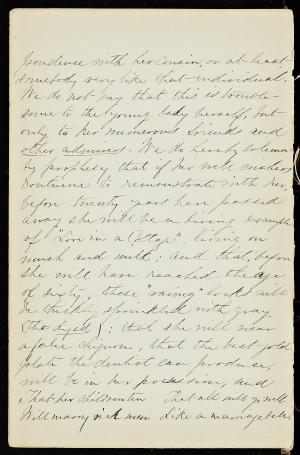 pondence with her cousin, or at least
somebody very like that individual.
We do not say that this is trouble-
some to the young lady herself, but
only to her numerous friends and
other admirers. We do hereby solemn-
ly prophesy that if her well wishers
continue to remonstrate with her,
before twenty years have passed
away she will be a living example
of "Love in a Cottage", living on
mush and milk; and that, before
she will have reached the age
of sixty, those "raving" locks will
be thickly sprinkled with gray
(the dyed); that she will wear
a false chignon, that the best gold
plate the dentist can produce,
will be in her possession, and
That her children ten That all will go well
Will marry rich men Like a marriage bell.